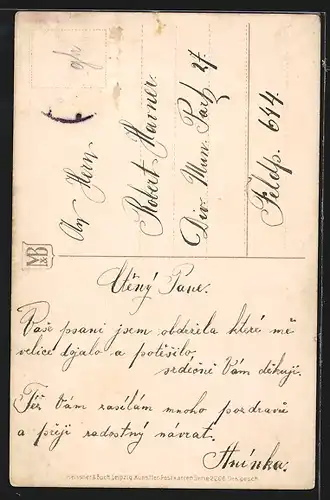 An Herrn
Robert Havner
Div. Mun. Park 27.
Feldp. 644.
M&B
Ctěný Pane.
Vaše psaní jsem obdržela které mě
velice dojalo a potěšilo
srdečně Vám děkuji.
Též Vám zasílám mnoho pozdravů
a přeji radostný návrat.
Anínka.
Meissner & Buch, Leipzig Künstler-Postkarten Serie